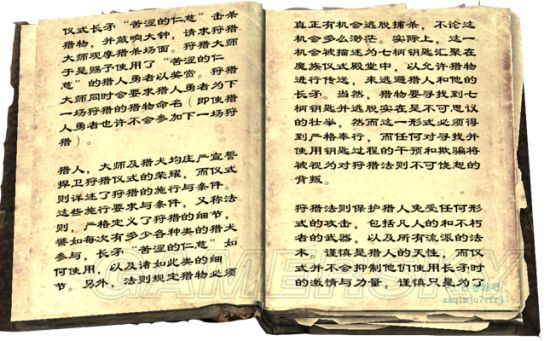 仪式长矛“苦涩的仁慈”击杀
猎物，并敲响大钟，请求狩猎
大师观摩猎杀场面。狩猎大师
于是赐予使用了“苦涩的仁
慈”的猎人勇者以奖赏。狩猎
大师同时会要求猎人勇者为下
一场狩猎的猎物命名（即使猎
人勇者也许不会参加下一场狩
猎）。
猎人，大师及猎犬均庄严宣誓
捍卫狩猎仪式的荣耀，而仪式
则详述了狩猎的施行与条件。
这些施行要求与条件，又称法
则，严格定义了狩猎的细节，
譬如每次有多少各种类的猎犬
参与，长矛“苦涩的仁慈”如
何使用，以及诸如此类的细
节。另外，法则规定猎物必须
真正有机会逃脱捕杀，不论这
机会多么渺茫。实际上，这一
机会被描述为七柄钥匙汇聚在
魔族仪式殿堂中，以允许猎物
进行传送，来逃避猎人和他的
长矛。当然，猎物要寻找到七
柄钥匙并逃脱实在是不可思议
的壮举，然而这一形式必须得
到严格奉行，而任何对寻找并
使用钥匙过程的干预和欺骗将
被视为对狩猎法则不可饶恕的
背叛。
狩猎法则保护猎人免受任何形
式的攻击，包括凡人的和不朽
者的武器，以及所有流派的法
术。谨慎是猎人的天性，而仪
式并不会抑制他们使用长矛时
的激情与力量，谨慎只是为了
GAMERSKY